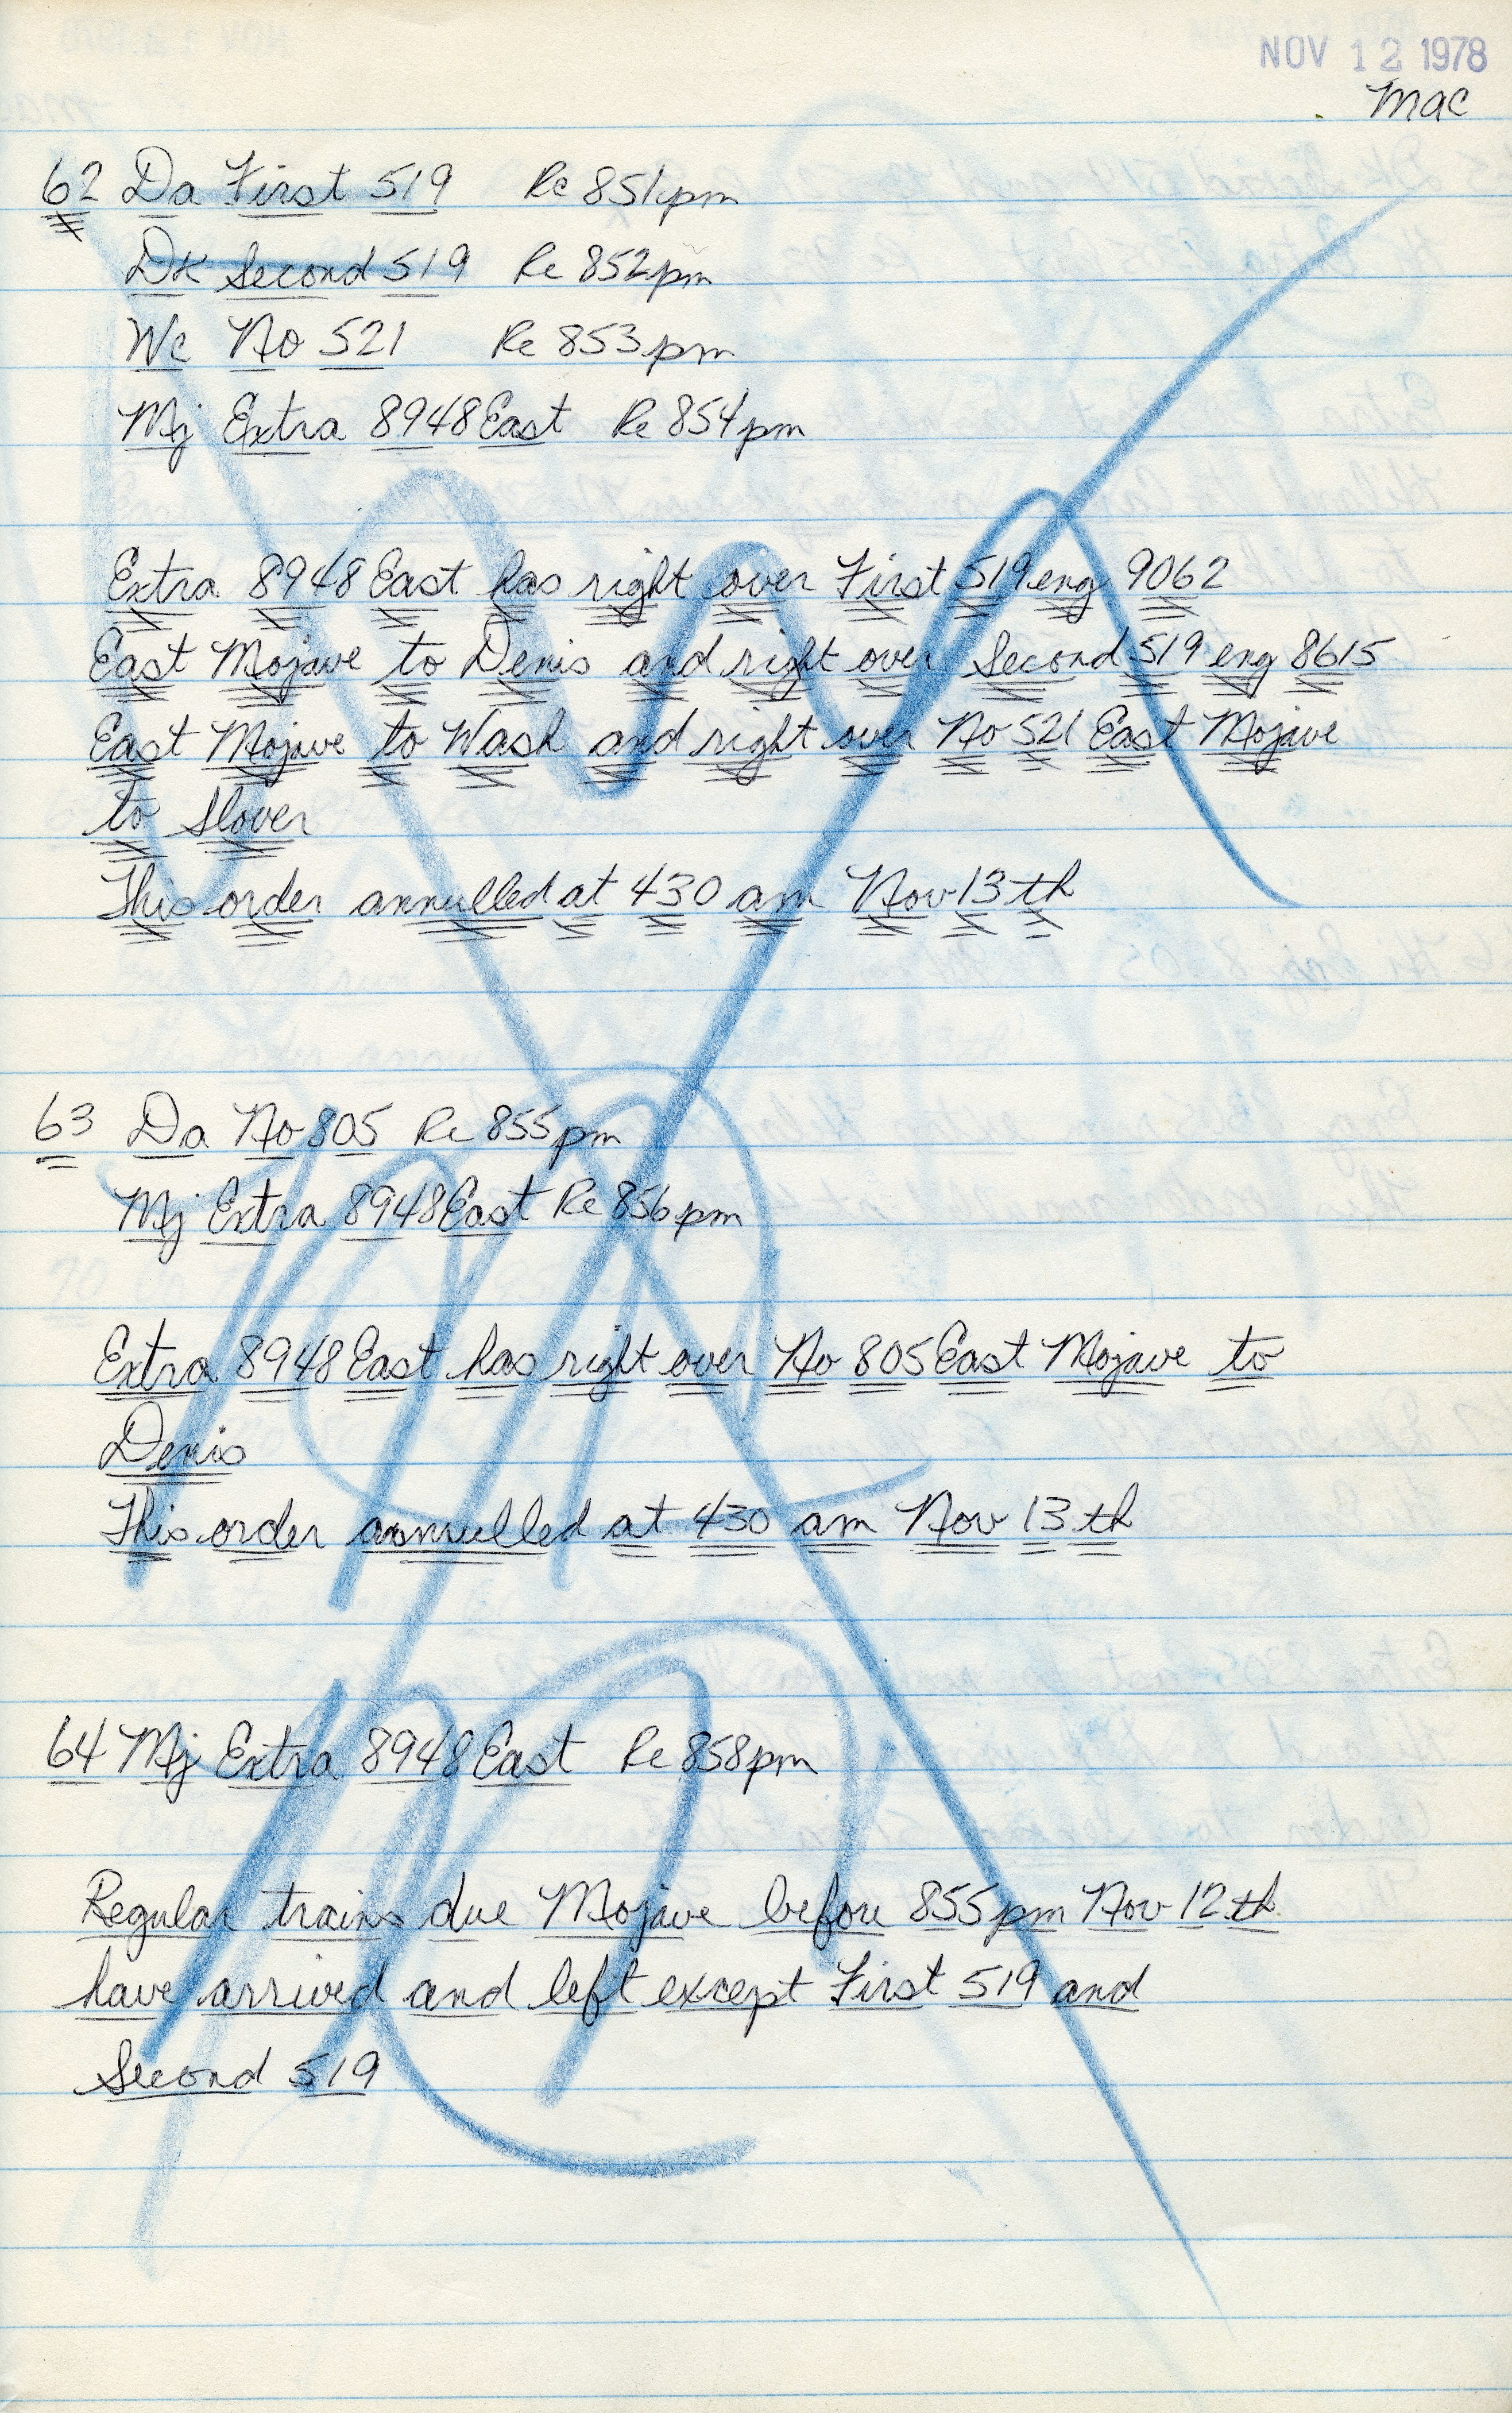 NOV 12 1978
Mac
62 Da First 519 Re 851pm
Dk Second 519 Re 852pm
Wc No 521 Re 853pm
Mj Extra 8948 East Re 854pm
Extra 8948 East has right over First 519 eng 9062
East Mojave to Denis and right over Second 519 eng 8615
East Mojave to Wash and right over No 521 East Mojave
to Slover
This order annulled at 430 am Nov 13th
63 Da No 805 Re 855pm
Mj Extra 8948 East Re 856pm
Extra 8948 East has right over No 805 East Mojave to
Denis
This order annulled at 430 am Nov 13th
64 Mj Extra 8948 East Re 858pm
Regular trains due Mojave before 855pm Nov 12th
have arrived and left except First 519 and
Second 519